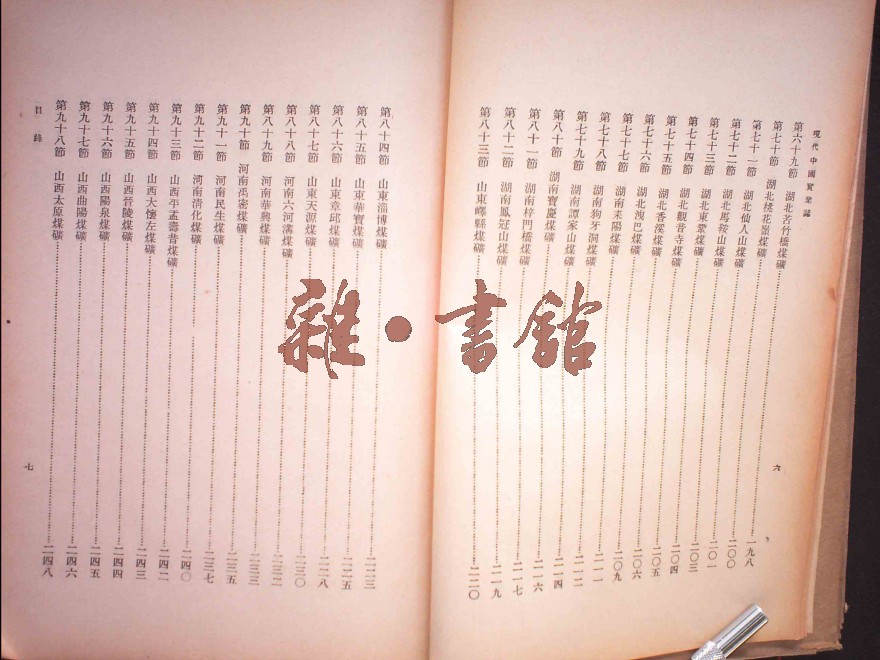 現代中國實業誌
第六十九節 湖北苦竹橋煤礦……一九八
第七十節 湖北桃花嶺煤礦……二〇〇
第七十一節 湖北仙人山煤礦……二〇一
第七十二節 湖北馬鞍山煤礦……二〇三
第七十三節 湖北東鞏煤礦……二〇四
第七十四節 湖北觀音寺煤礦……二〇五
第七十五節 湖北香溪煤礦……二〇六
第七十六節 湖北洩巴煤礦……二〇九
第七十七節 湖南耒陽煤礦……二一一
第七十八節 湖南狗牙洞煤礦……二一二
第七十九節 湖南譚家山煤礦……二一四
第八十節 湖南寶慶煤礦……二一六
第八十一節 湖南梓門橋煤礦……二一七
第八十二節 湖南鳳冠山煤礦……二一九
第八十三節 山東嶧縣煤礦……二二〇
六
第八十四節 山東淄博煤礦……二二三
第八十五節 山東華寶煤礦……二二五
第八十六節 山東章邱煤礦……二二八
第八十七節 山東天源煤礦……二三〇
第八十八節 河南六河溝煤礦……二三二
第八十九節 河南華興煤礦……二三三
第九十節 河南禹密煤礦……二三五
第九十一節 河南民生煤礦……二三七
第九十二節 河南清化煤礦……二四〇
第九十三節 山西平孟壽昔煤礦……二四二
第九十四節 山西大懷左煤礦……二四三
第九十五節 山西晉陵煤礦……二四四
第九十六節 山西陽泉煤礦……二四五
第九十七節 山西曲陽煤礦……二四六
第九十八節 山西太原煤礦……二四八
目錄
七
雜·書館